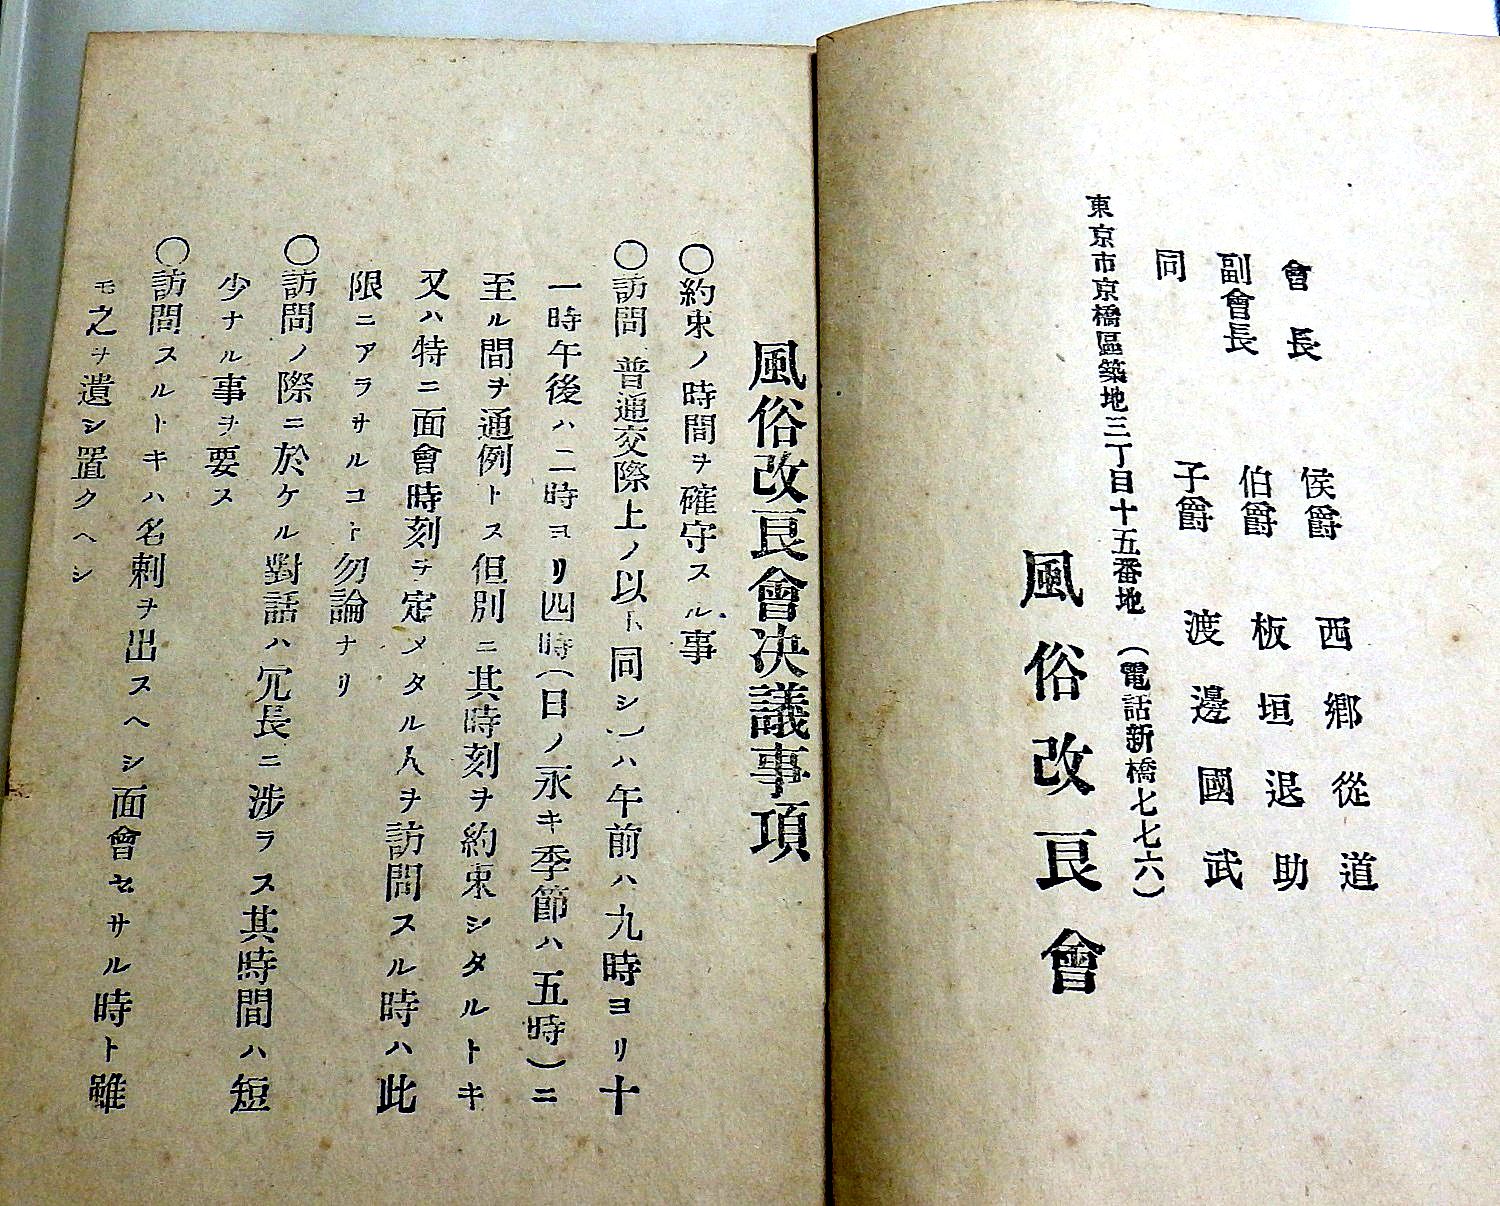 會長 侯爵 西鄕從道
副會長 伯爵 板垣退助
同 子爵 渡邊國武
東京市京橋區築地三丁目十五番地(電話新橋七七六)
風俗改良會
風俗改良會決議事項
〇約束ノ時間ヲ確守スル事
〇訪問(普通交際上ノ以下同シ)ハ午前ハ九時ヨリ十
一時午後ハ二時ヨリ四時(日ノ永キ季節ハ五時)ニ
至ル間ヲ通例トス但別ニ其時刻ヲ約束シタルトキ
又ハ特ニ面會時刻ヲ定メタル人ヲ訪問スル時ハ此
限ニアラサルコト勿論ナリ
〇訪問ノ際ニ於ケル對話ハ冗長ニ涉ラス其時間ハ短
少ナル事ヲ要ス
〇訪問スルトキハ名刺ヲ出スヘシ面會セサル時ト雖
モ之ヲ遺シ置クヘシ